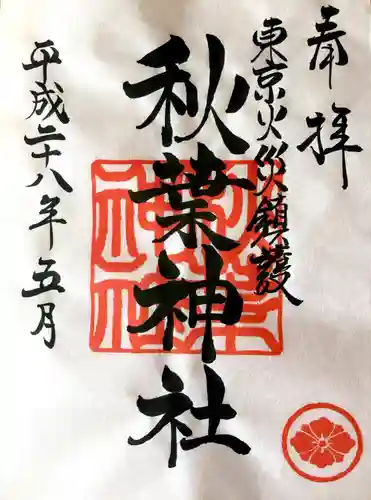 奉拝
東京火災鎮護
秋葉神社
平成二十八年五月